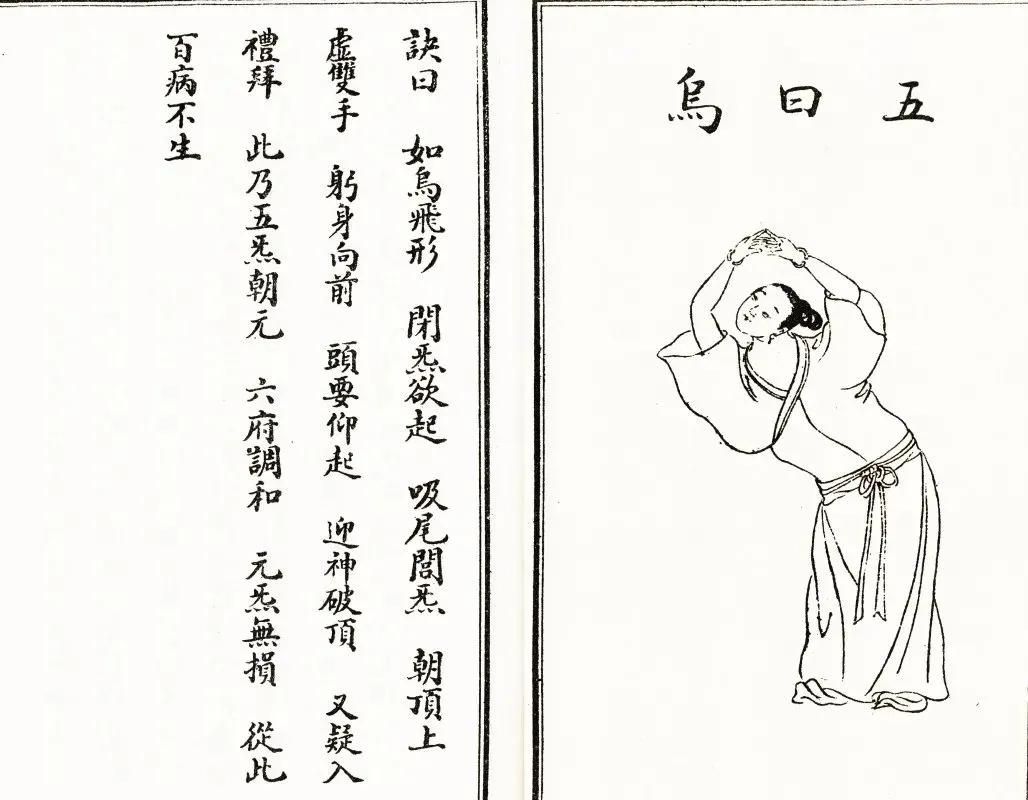 五曰烏
訣曰 如烏飛形 閉炁欲起 吸尾閭炁 朝頂上
虛雙手 躬身向前 頭要仰起 迎神破頂 又疑入
禮拜 此乃五炁朝元 六府調和 元炁無損 從此
百病不生